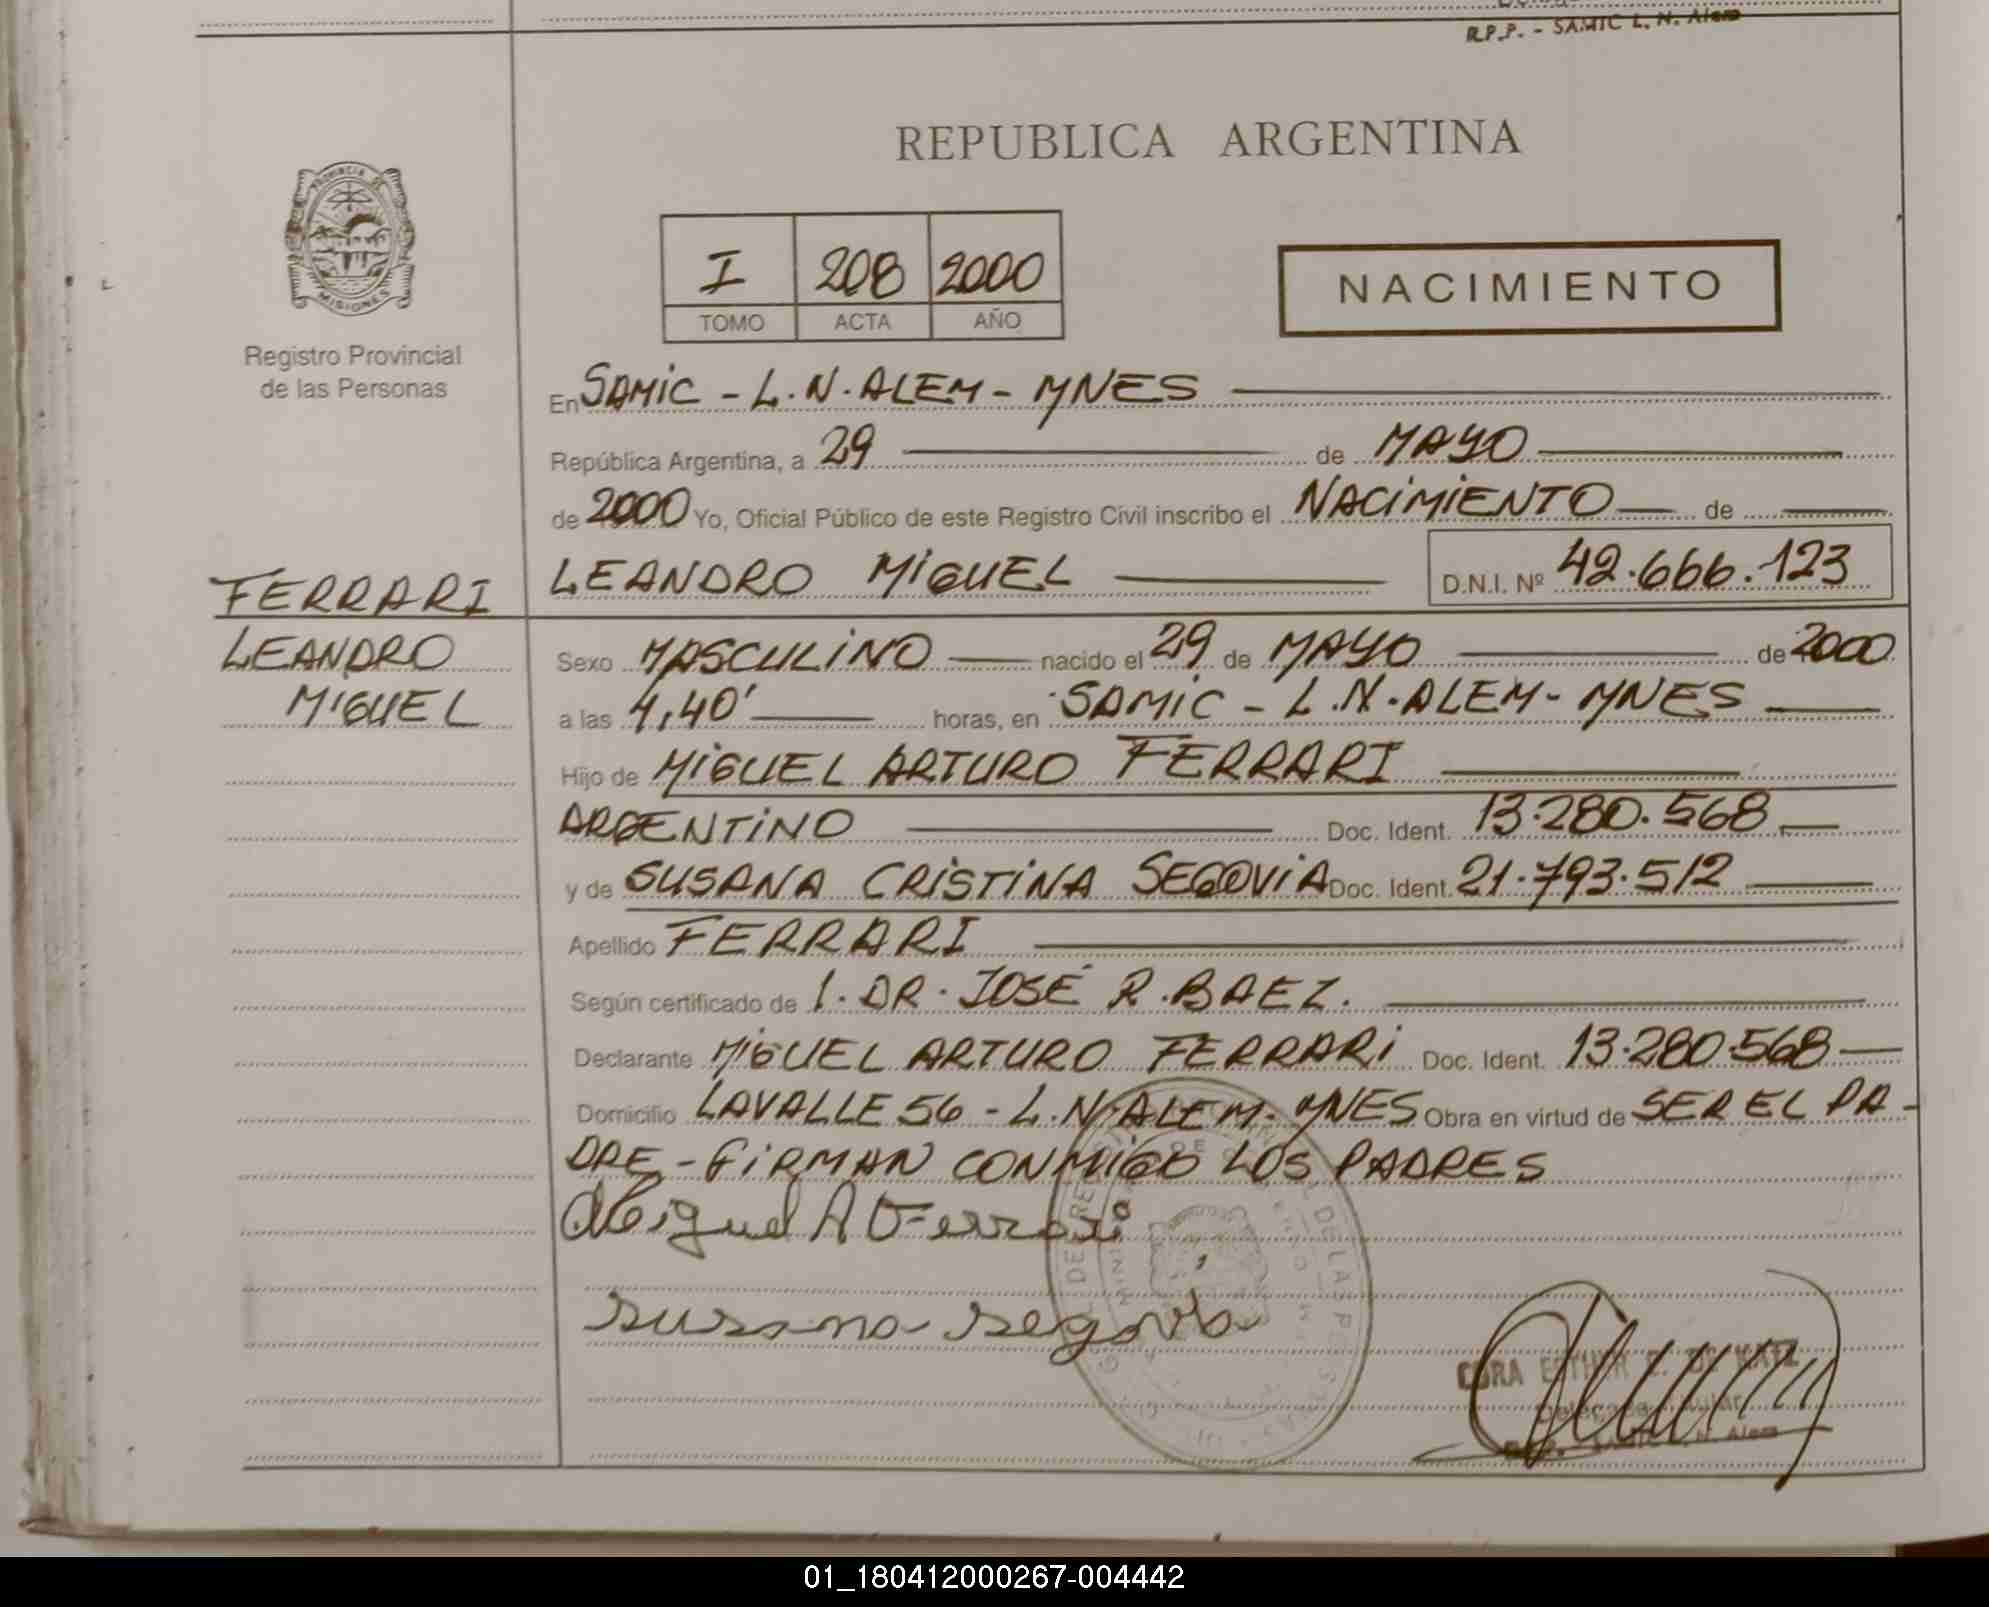 R.P.P. - SAMIC L. N. Alem
REPUBLICA ARGENTINA
PROVINCIA DE
MISIONES
Registro Provincial
de las Personas
I 208 2000
TOMO ACTA AÑO
NACIMIENTO
En SAMIC - L.N. ALEM - MNES
República Argentina, a 29 de MAYO
de 2000 Yo, Oficial Público de este Registro Civil inscribo el NACIMIENTO de
LEANDRO MIGUEL D.N.I. Nº 42.666.123
FERRARI
LEANDRO
MIGUEL
Sexo MASCULINO nacido el 29 de MAYO de 2000
a las 4,40' horas, en SAMIC - L.N. ALEM - MNES
Hijo de MIGUEL ARTURO FERRARI
ARGENTINO Doc. Ident. 13.280.568
y de SUSANA CRISTINA SEGOVIA Doc. Ident. 21.793.512
Apellido FERRARI
Según certificado de 1. DR. JOSÉ R. BAEZ.
Declarante MIGUEL ARTURO FERRARI Doc. Ident. 13.280.568
Domicilio LAVALLE 56 - L.N. ALEM - MNES Obra en virtud de SER EL PA-
DRE - FIRMAN CONMIGO LOS PADRES
Miguel A Ferrari
Susana Segovia
DE LAS PERSONAS
CORA ESTHER DE KATZ
SAMIC L. N. Alem
01_180412000267-004442